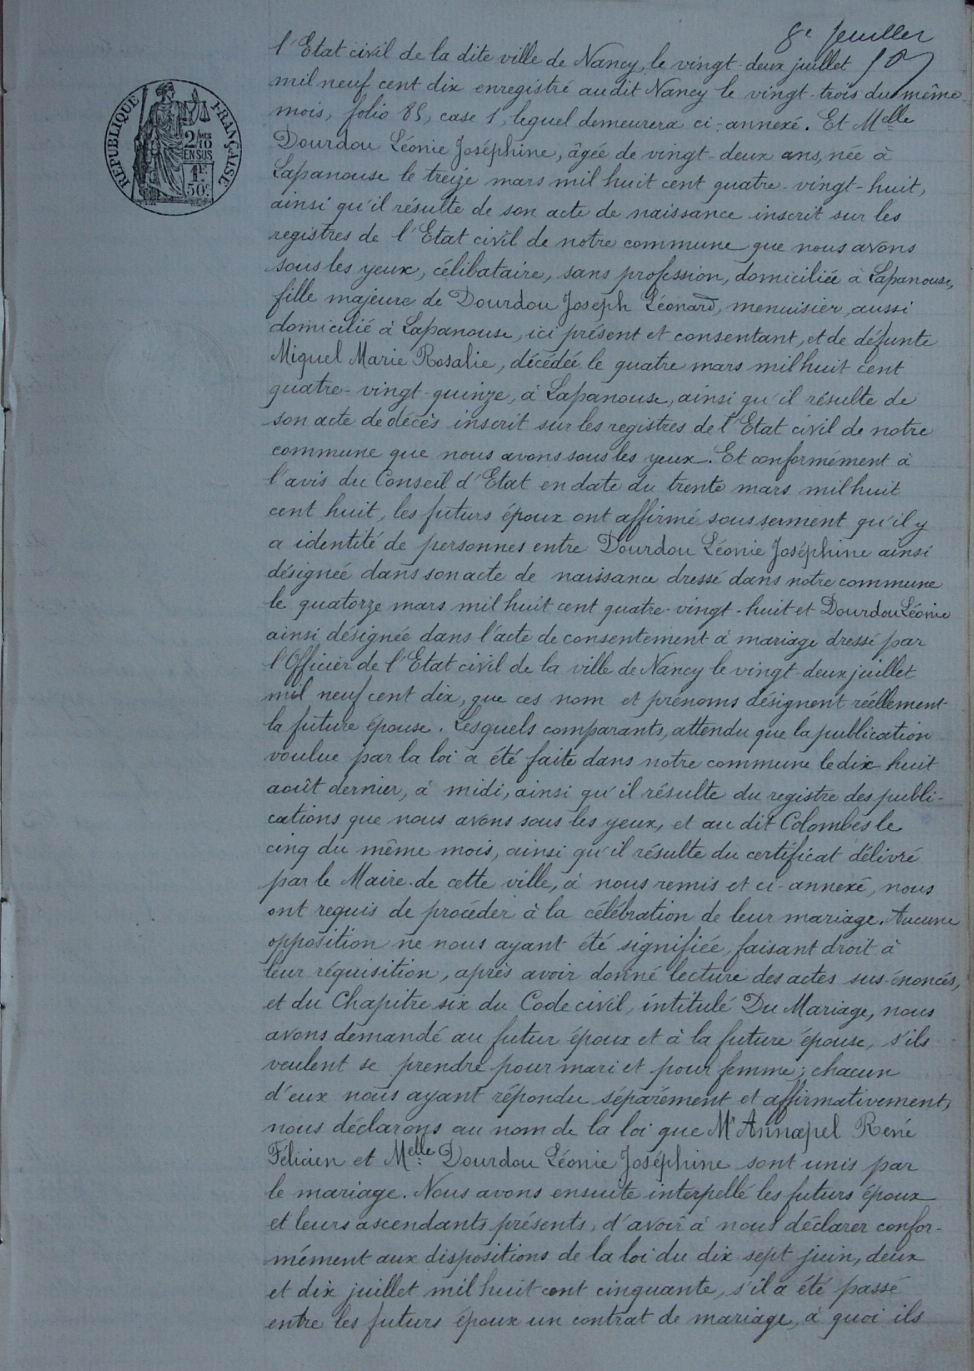 8e feuillet
l'Etat civil de la dite ville de Nancy, le vingt-deux juillet
mil neuf cent dix enregistré audit Nancy le vingt-trois du même
mois, folio 85, case 1, lequel demeurera ci-annexé. Et Melle
Dourdou Léonie Joséphine, âgée de vingt-deux ans, née à
Lapanouse le treize mars mil huit cent quatre-vingt-huit,
ainsi qu'il résulte de son acte de naissance inscrit sur les
registres de l'Etat civil de notre commune que nous avons
sous les yeux, célibataire, sans profession, domiciliée à Lapanouse,
fille majeure de Dourdou Joseph Léonard, menuisier, aussi
domicilié à Lapanouse, ici présent et consentant, et de défunte
Miquel Marie Rosalie, décédée le quatre mars mil huit cent
quatre-vingt-quinze, à Lapanouse, ainsi qu'il résulte de
son acte de décès inscrit sur les registres de l'Etat civil de notre
commune que nous avons sous les yeux. Et conformément à
l'avis du Conseil d'Etat en date du trente mars mil huit
cent huit, les futurs époux ont affirmé sous serment qu'il y
a identité de personnes entre Dourdou Léonie Joséphine ainsi
désignée dans son acte de naissance dressé dans notre commune
le quatorze mars mil huit cent quatre-vingt-huit et Dourdou Léonie
ainsi désignée dans l'acte de consentement à mariage dressé par
l'Officier de l'Etat civil de la ville de Nancy le vingt-deux juillet
mil neuf cent dix, que ces nom et prénoms désignent réellement
la future épouse. Lesquels comparants, attendu que la publication
voulue par la loi a été faite dans notre commune le dix-huit
août dernier, à midi, ainsi qu'il résulte du registre des publi-
cations que nous avons sous les yeux, et au dit Colombes le
cinq du même mois, ainsi qu'il résulte du certificat délivré
par le Maire de cette ville, à nous remis et ci-annexé, nous
ont requis de procéder à la célébration de leur mariage. Aucune
opposition ne nous ayant été signifiée, faisant droit à
leur réquisition, après avoir donné lecture des actes sus-énoncés,
et du Chapitre six du Code civil, intitulé Du Mariage, nous
avons demandé au futur époux et à la future épouse, s'ils
veulent se prendre pour mari et pour femme; chacun
d'eux nous ayant répondu séparément et affirmativement,
nous déclarons au nom de la loi que Mr Annapel René
Félicien et Melle Dourdou Léonie Joséphine sont unis par
le mariage. Nous avons ensuite interpellé les futurs époux
et leurs ascendants présents, d'avoir à nous déclarer confor-
mément aux dispositions de la loi du dix sept juin, deux
et dix juillet mil huit cent cinquante, s'il a été passé
entre les futurs époux un contrat de mariage, à quoi ils
RÉPUBLIQUE FRANÇAISE
2/10
EN SUS
1F
50c